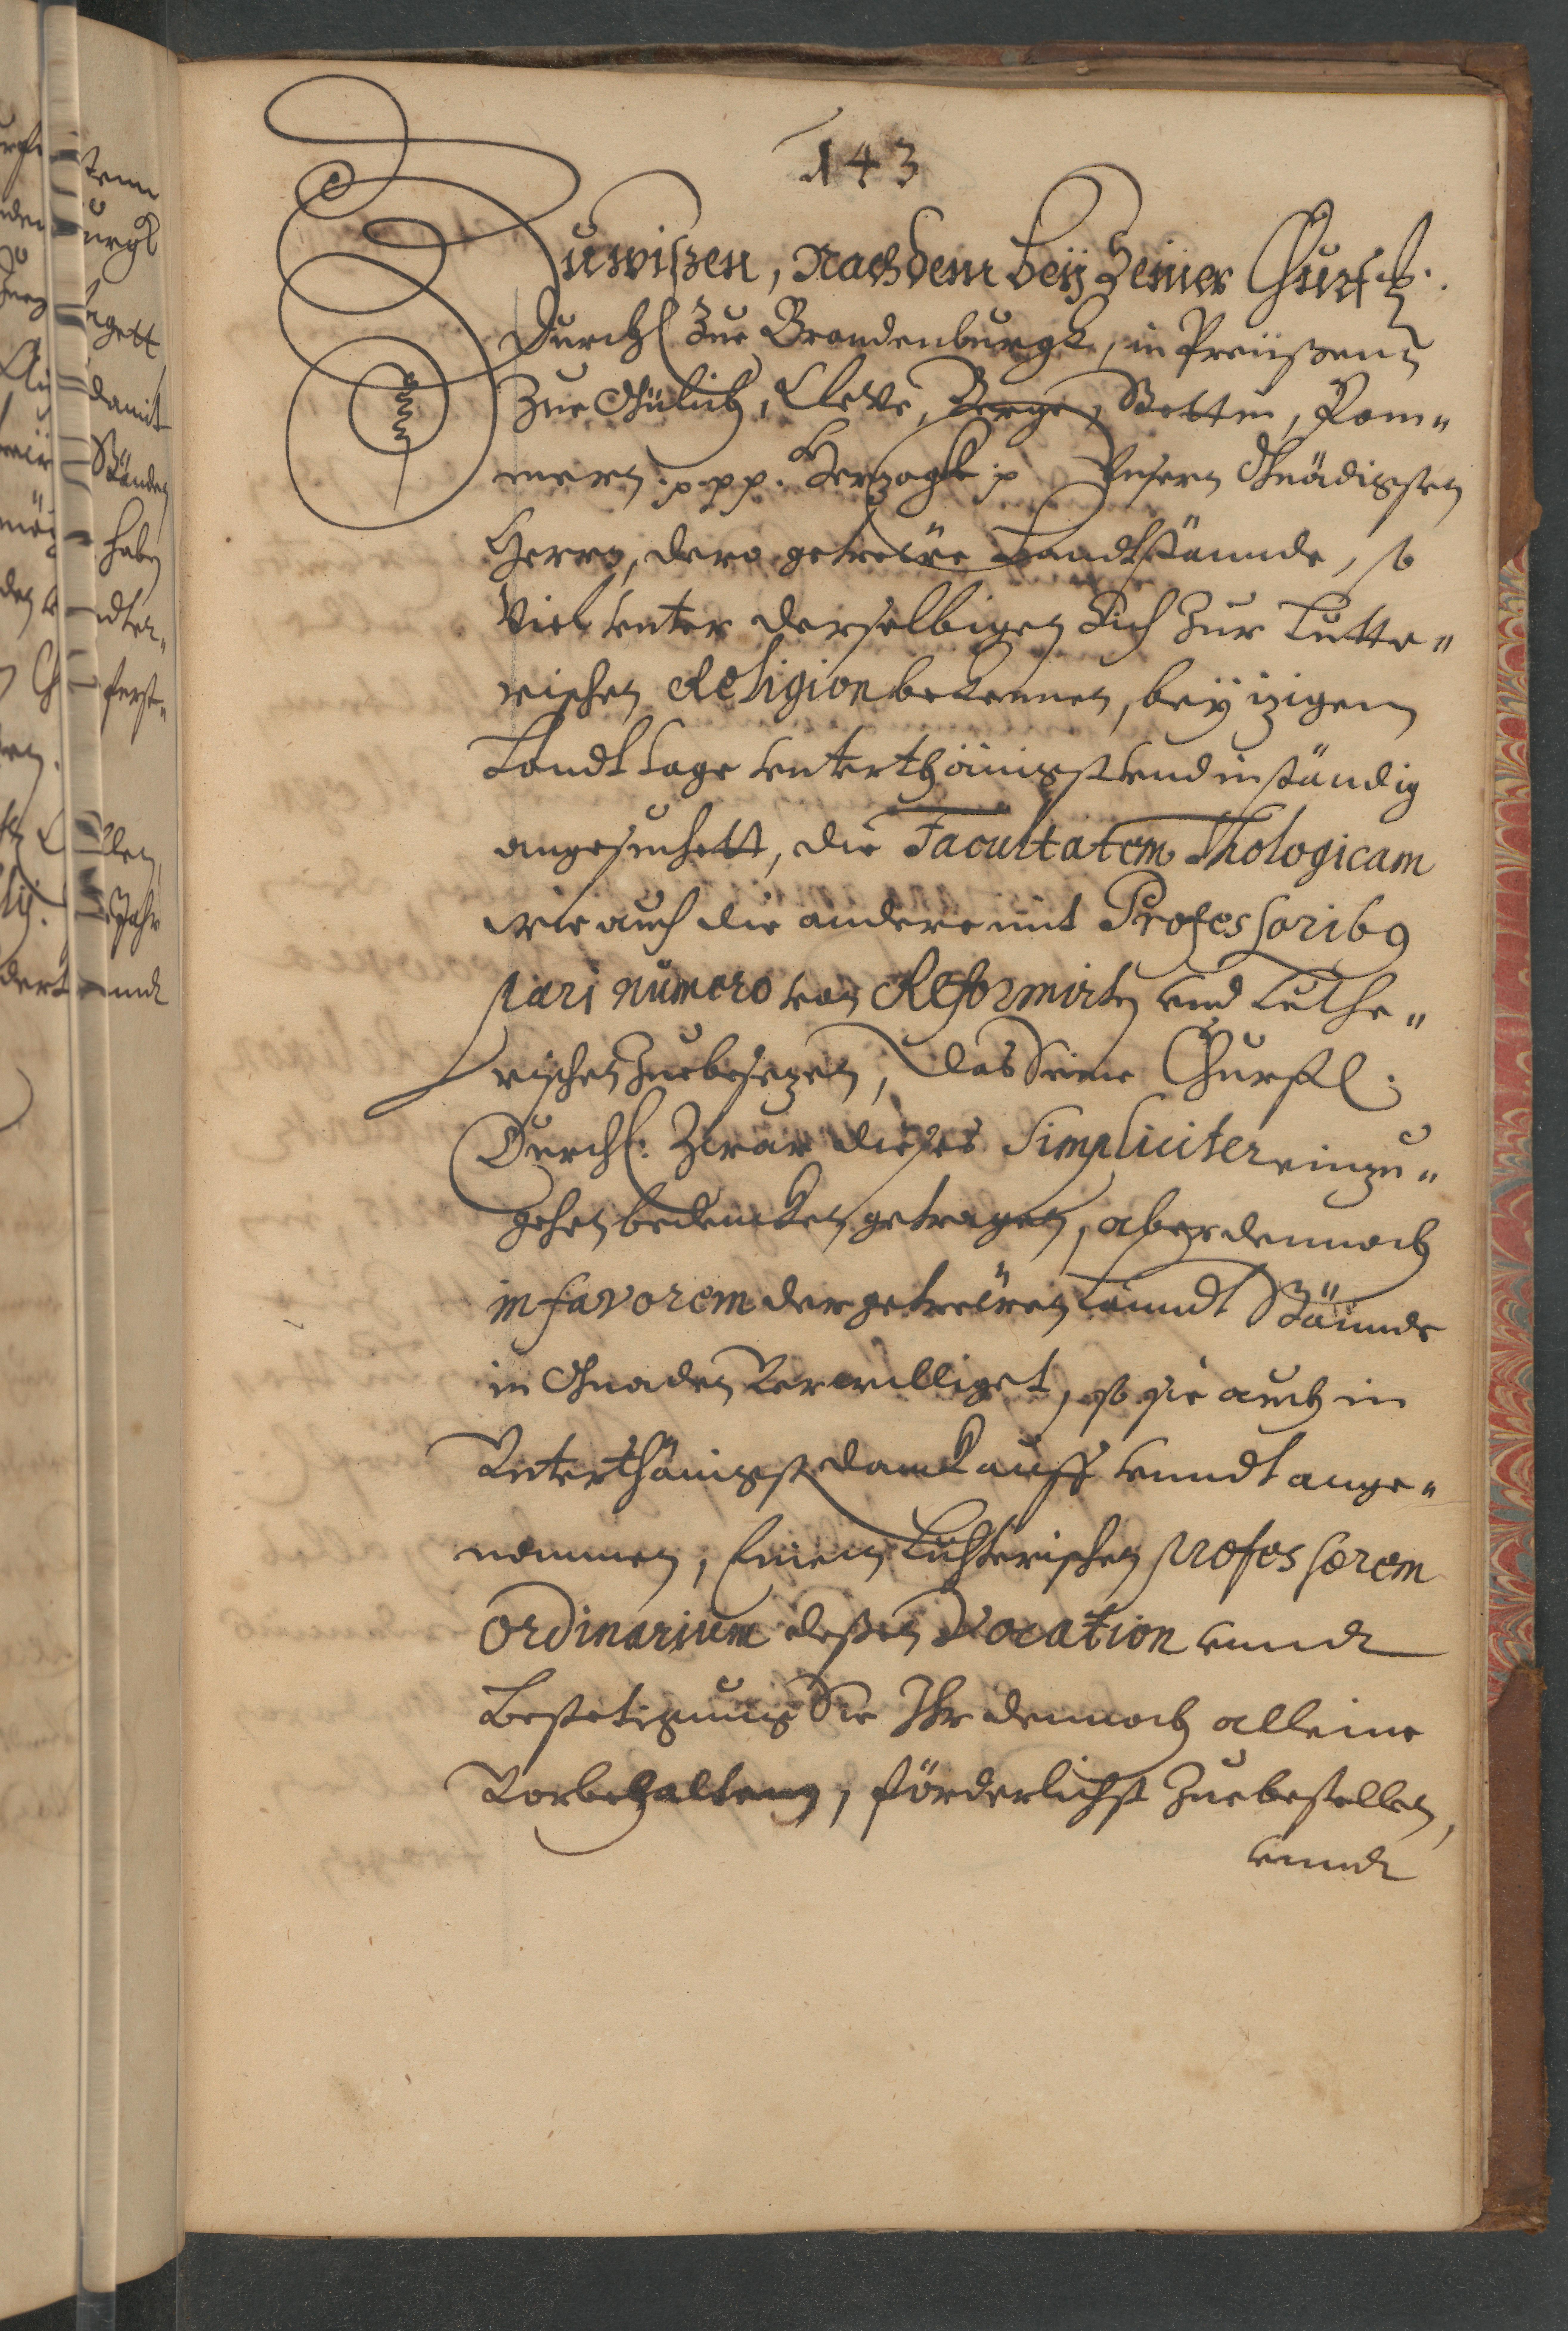 143
Zuwißen, Nachdem beÿ Seiner Churfl.
Durchl Zue Brandenburgk, in Preüßenn
Zue Gülich, Cleve, Berge, Stettin, Pom„
mern .p.p.p. Hertzogk p Vnserm Gnädigsten
Herrn, dero getreüe Landtstännde, so
Viel vnter derselbigen Sich Zur Lutte„
rischen Religion bekennen, beÿ itzigem
Landttage vnterthänigst vnd instándig
angesuchett, die Facultatem Thologicam
wie auch die andere mit Professorib9
pari numero von Reformirten vnd Luthe„
rischen Zuebesetzen, das Seine Churfl:
Durchl: Zwar dießes Simpliciter einzu„
gehen bedencken getragen, aber dennoch
in favorem der getreüen Lanndt Stännde
in Gnaden Verwilliget, so sie auch in
Vnterthänigst danck auff vnndt ange„
nommen, Einen Lutherischen professorem
Ordinarium deßen Vocation vnndt
Bestetigung Sie Ihr dennoch alleine
Vorbehalten, förderlichst Zuebestellen,
vnndt